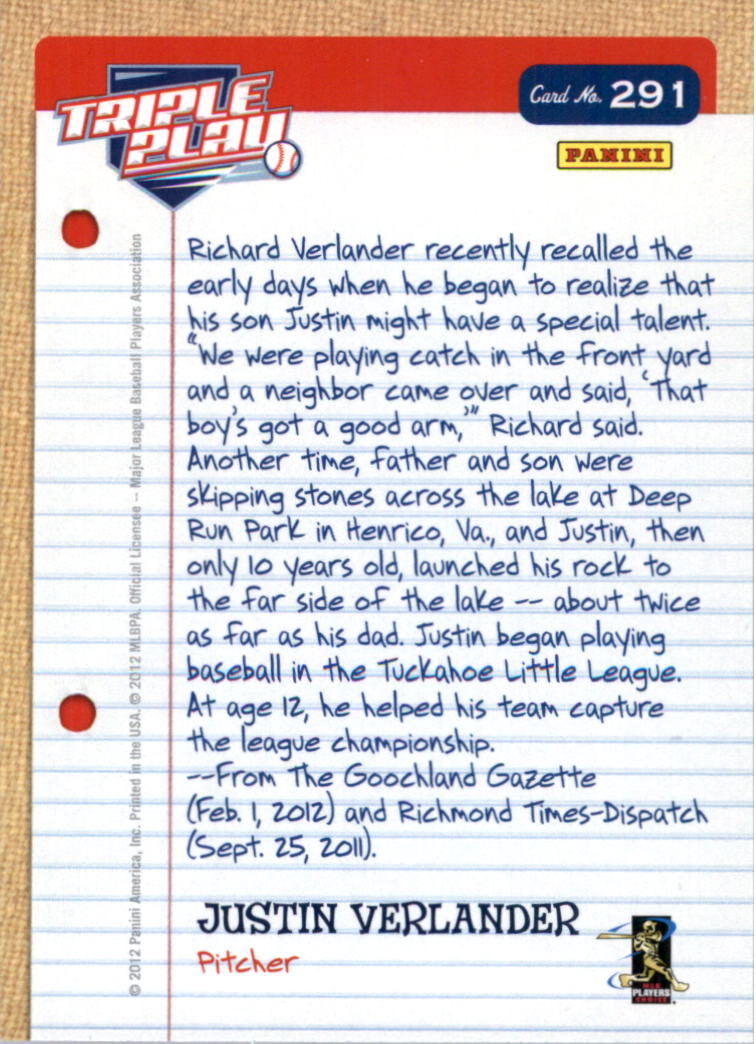 TRIPLE
PLAY
Card No. 291
PANINI
Richard Verlander recently recalled the
early days when he began to realize that
his son Justin might have a special talent.
"We were playing catch in the front yard
and a neighbor came over and said, 'That
boy's got a good arm,'" Richard said.
Another time, father and son were
skipping stones across the lake at Deep
Run Park in Henrico, Va., and Justin, then
only 10 years old, launched his rock to
the far side of the lake -- about twice
as far as his dad. Justin began playing
baseball in the Tuckahoe Little League.
At age 12, he helped his team capture
the league championship.
--From The Goochland Gazette
(Feb. 1, 2012) and Richmond Times-Dispatch
(Sept. 25, 2011).
JUSTIN VERLANDER
Pitcher
MLB
PLAYERS
CHOICE
© 2012 Panini America, Inc. Printed in the USA. © 2012 MLBPA, Official Licensee -- Major League Baseball Players Association